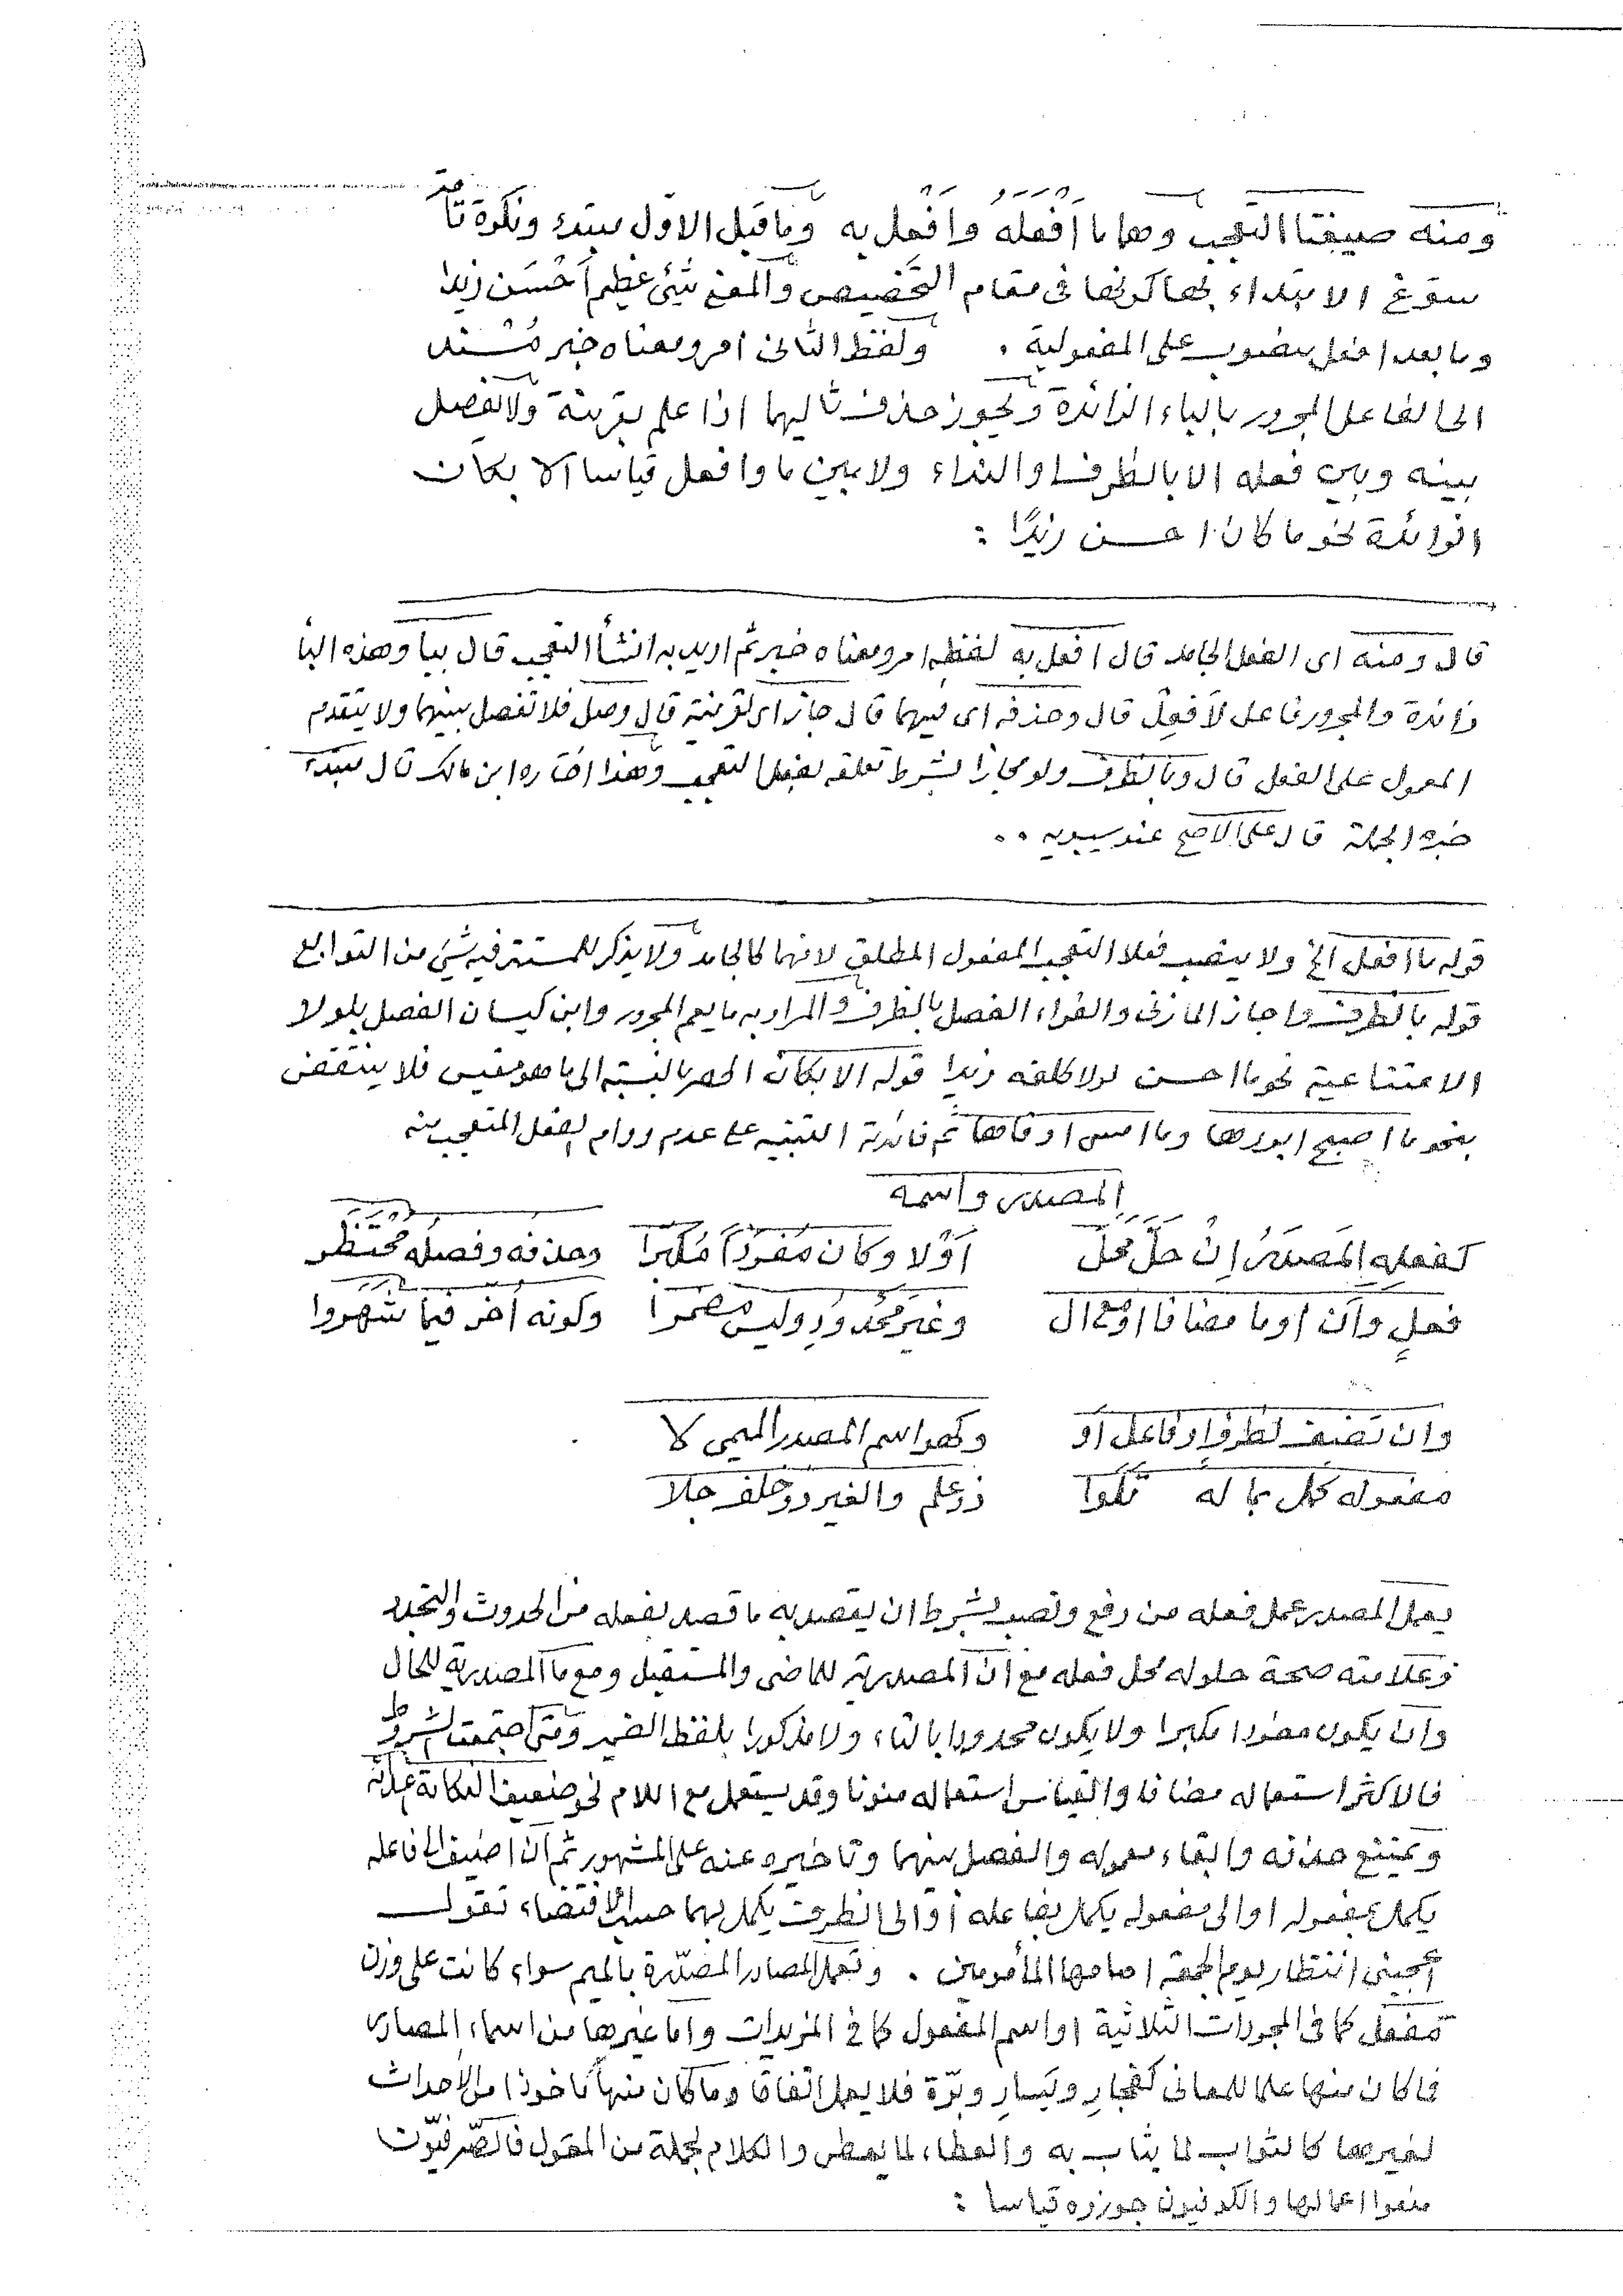 ومنه صيغتا التعجب وهما ما اَفْعَلَهُ واَفْعِل به وما قبل الاوّل مبتدء ونكرة تامّة
سوّغ الابتداء بها كونها فى مقام التخصيص والمعنى شيئ عظيم اَحْسَنَ زيدا
وما بعد افعل منصوب على المفعولية . ولفظ الثانى امر ومعناه خبر مُسْند
الى الفاعل المجرور بالباء الزائدة ويجوز حذف تاليهما اذا علم بقرينة ولا يفصل
بينه وبين فعله الا بالظرف او النداء ولا بين ما وافعل قياسا الا بكان
الزائدة نحو ما كان احسن زيدًا :
قال ومنه اى الفعل الجامد قال افعل به لفظه امر ومعناه خبر ثم اريد به انشأ التعجب قال ببا وهذه البأ
زائدة والمجرور فاعل لأفعِل قال وحذفه اى فيهما قال جاز اى لقرينة قال وصل فلا تفصل بينهما ولا يتقدم
المعمول على الفعل قال وبالظرف ولو مجازا بشرط تعلقه بفعل التعجب وهذا اختاره ابن مالك قال مبتدء
خبره الجملة قال على الاصح عند سيبويه ..
قوله ما افعل الخ ولا ينصب فعلا التعجب المفعول المطلق لانهما كالجامد ولا يذكر للمستتر فيه شيئ من التوابع
قوله بالظرف واجاز المازنى والفراء الفصل بالظرف والمراد به ما يعم المجرور وابن كيسان الفصل بلولا
الامتناعية نحو ما احسن لولا كلفه زيدا قوله الا بكان الحصر بالنسبة الى ما هو مقيس فلا ينتقض
بنحو ما اصبح ابردها وما امسى ادفاها ثم فائدته التنبيه على عدم دوام الفعل المتعجب منه
المصدر واسمه
كفعلِهِ المَصدَرُ اِنْ حَلَّ مَحَلّ اَوّلا وكان مُفرَدًا مُكبَرا وحذفه وفصلُه مُحْتَظَر
فعلٍ وأن او ما مضافا او مع ال وغيرَ محدودٍ وليس مضمرا وكونه أخر فيما شهروا
وان تضف لظرفٍ او فاعل أو وكهو اسم المصدر الميمى لا
مفعوله كمل بما له تلوا ذو علم والغير ذو خلف جلا
يعمل المصدر عمل فعله من رفع ونصب بشرط ان يقصد به ما قصد بفعله من الحدوث والتجدد
وعلامته صحة حلوله محل فعله مع ان المصدرية للماضى والمستقبل ومع ما المصدرية للحال
وان يكون مفردا مكبرا ولا يكون محدودا بالتاء ولا مذكورا بلفظ الضمير ومتى اجتمعت الشروط
فالاكثر استعماله مضافا والقياس استعماله منونا وقد يستعمل مع اللام نحو ضعيف النكاية اعدائه
ويمتنع حذفه وابقاء معموله والفصل بينهما وتاخيره عنه على المشهور ثم ان اضيف الى فاعله
يكمل بمفعوله او الى مفعوله يكمل بفاعله او الى الظرف يكمل بهما حسب الاقتضاء تقول
اعجبنى انتظار يوم الجمعة امامها المأمومين . وتعمل المصادر المصدّرة بالميم سواء كانت على وزن
مَفعَل كما فى المجردات الثلاثية او اسم المفعول كما فى المزيدات واما غيرها من اسماء المصادر
فما كان منها علما للمعانى كفجارِ ويَسارِ وبرّة فلا يعمل اتفاقا وما كان منها مأخوذا من الأحداث
لغيرها كالثواب لما يثاب به والعطاء لما يعطى والكلام لجملة من المقول فالبصريّون
منعوا اعمالها والكوفيون جوزوه قياسا :